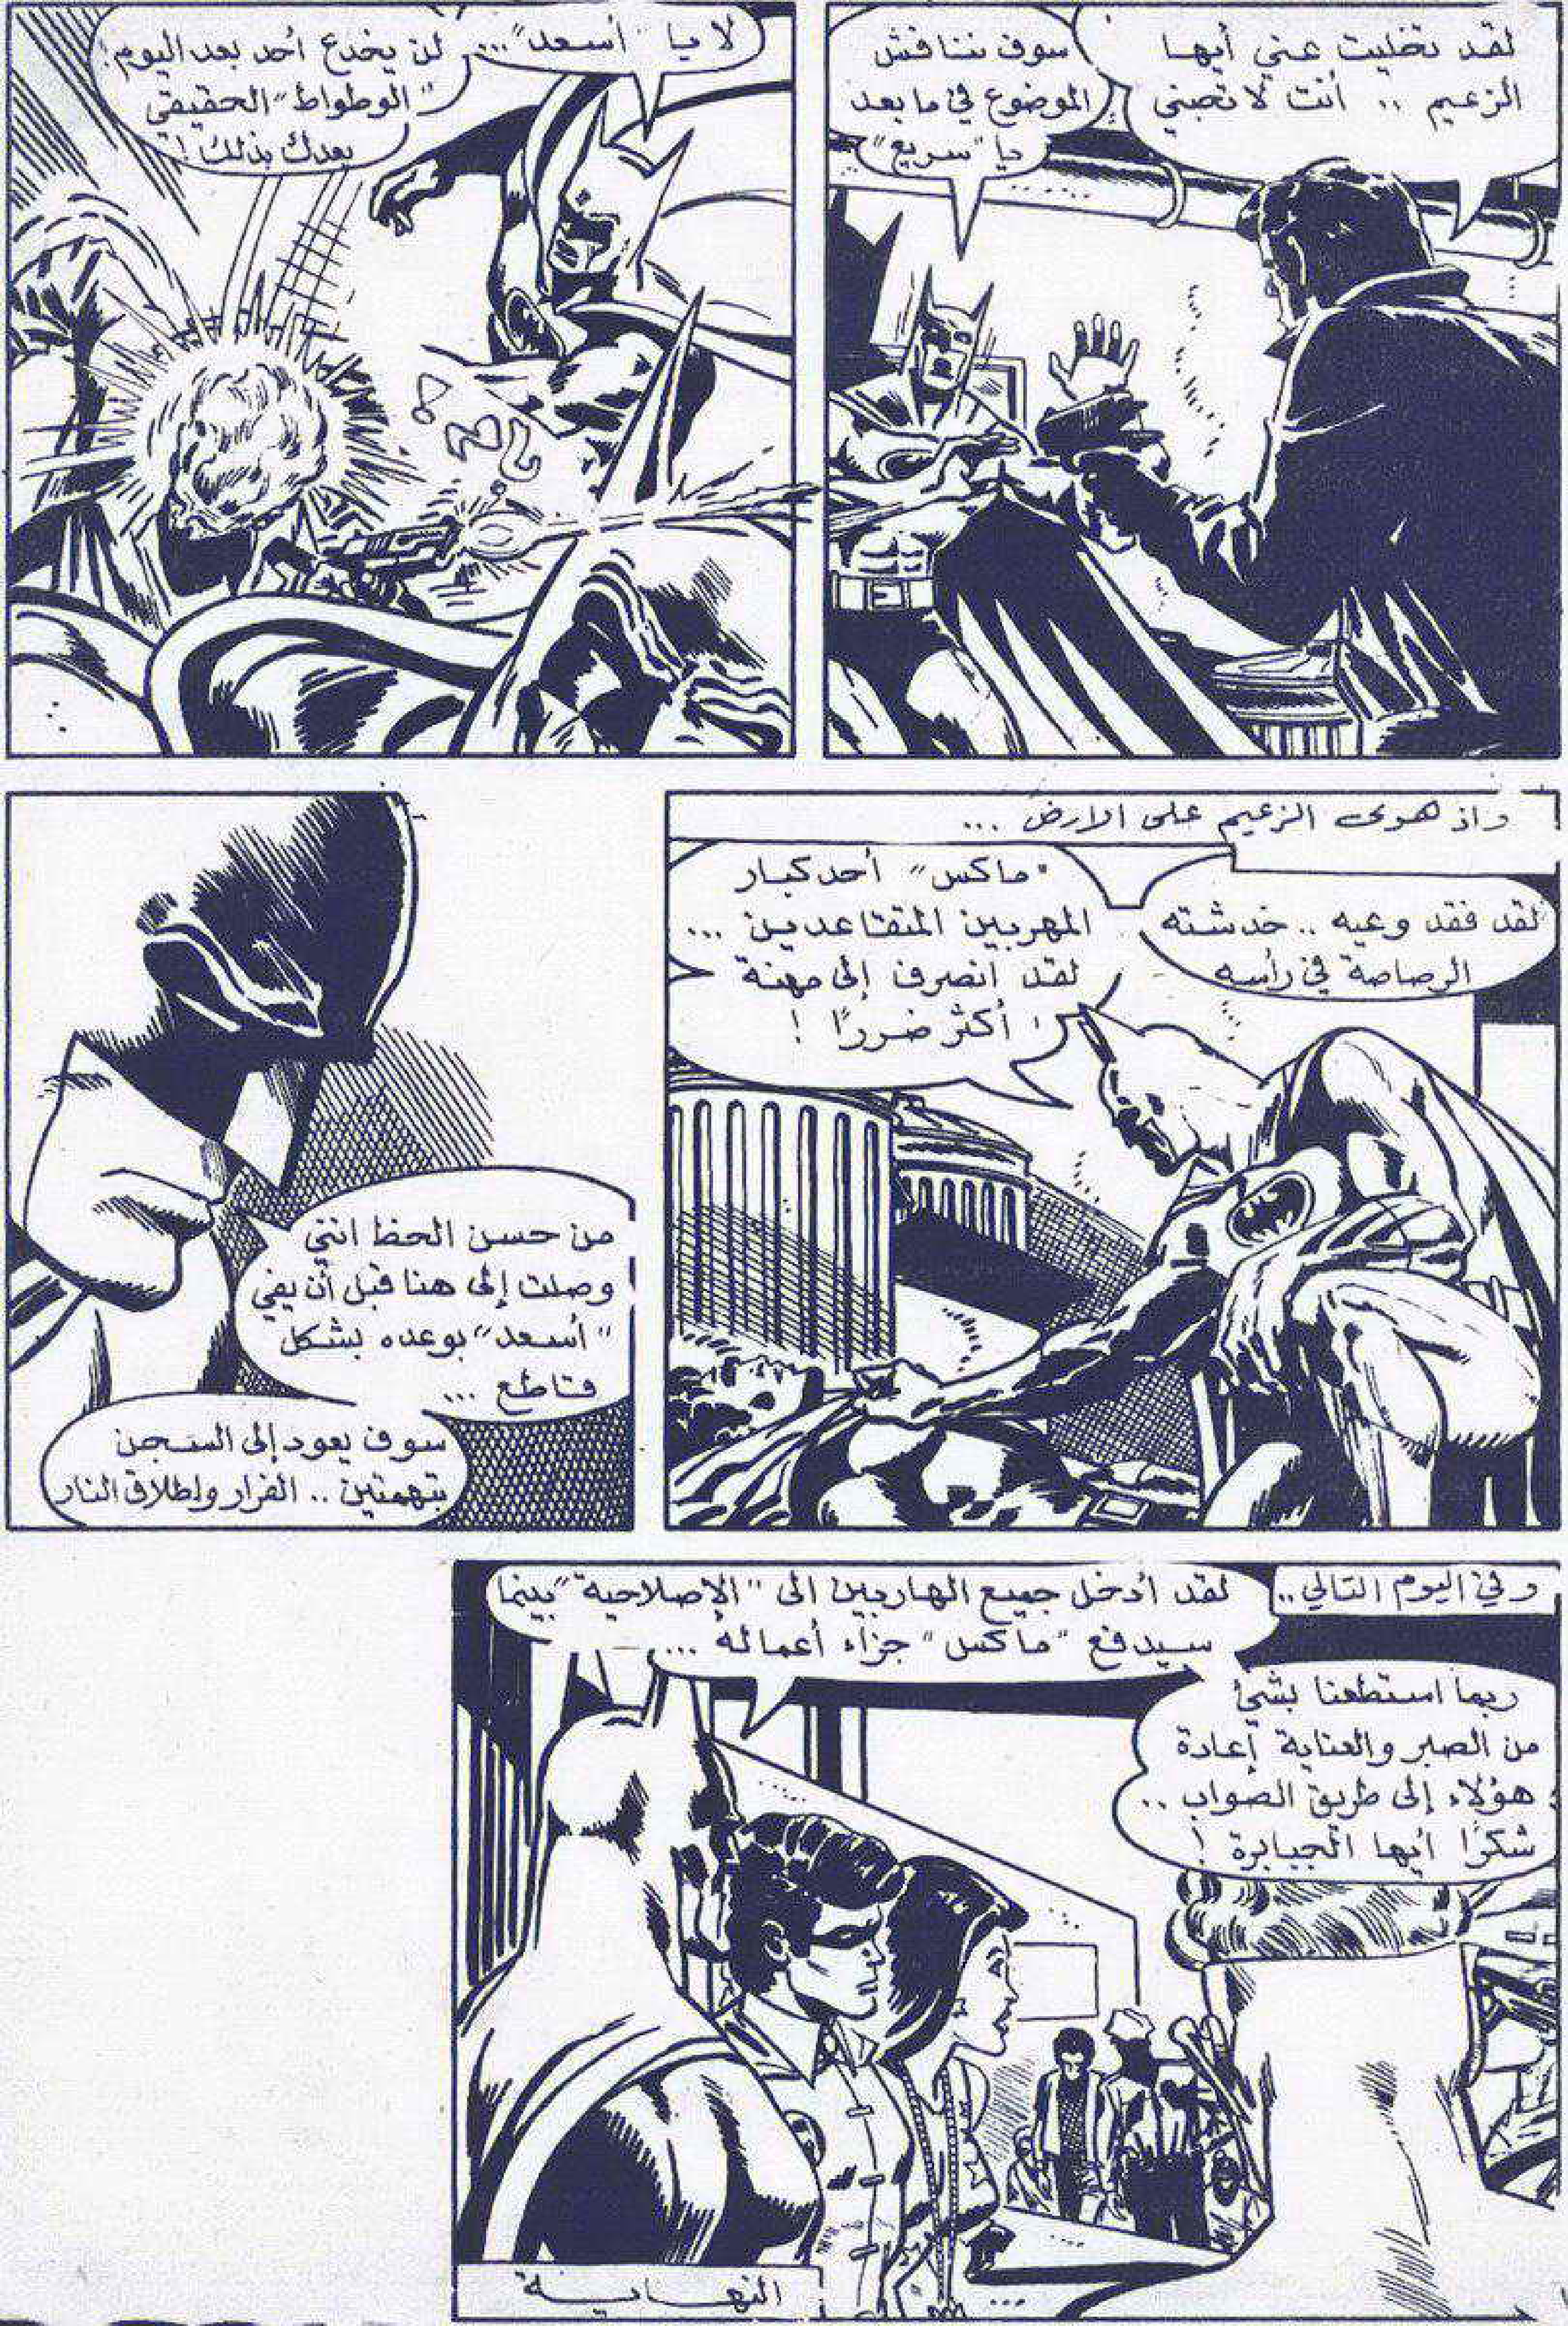 لقد تخليت عني أيها
الزعيم .. أنت لا تحبني
سوف نناقش
الموضوع في ما بعد
يا "سريع"
لا يا "أسعد" ...
لن يخدع أحد بعد اليوم!
"الوطواط" الحقيقي
يعدك بذلك!
واذ هوى الزعيم على الارض ...
لقد فقد وعيه .. خدشته
الرصاصة في رأسه
"ماكس" أحد كبار
المهربين المتقاعدين ...
لقد انصرف إلى مهنة
أكثر ضررًا !
من حسن الحظ انني
وصلت إلى هنا قبل أن يفي
"أسعد" بوعده بشكل
قاطع ...
سوف يعود إلى السجن
بتهمتين .. الفرار وإطلاق النار
وفي اليوم التالي ..
لقد أدخل جميع الهاربين الى "الإصلاحية" بينما
سيدفع "ماكس" جزاء أعماله ...
ربما استطعنا بشئ
من الصبر والعناية إعادة
هؤلاء إلى طريق الصواب ..
شكرًا أيها الجبابرة !
النهاية